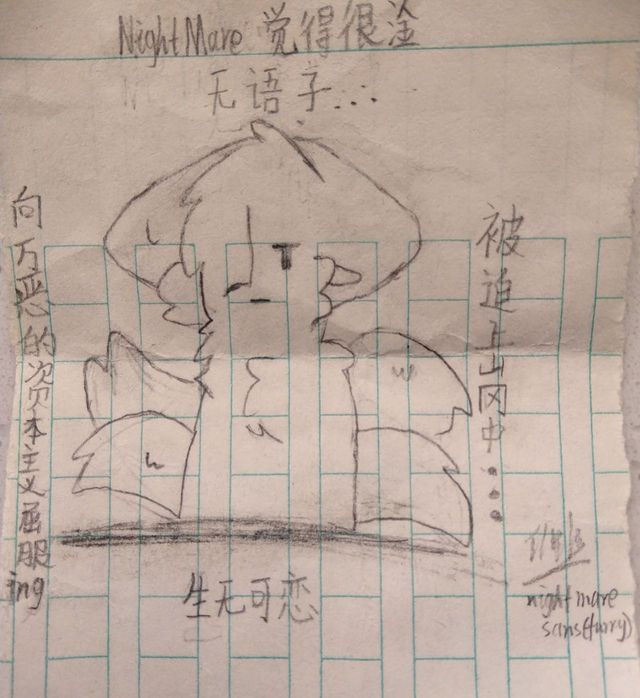 NightMare 觉得很淦
无语子...
向万恶的资本主义屈服ing
被迫上山冈中...
生无可恋
nightmare
sans(furry)